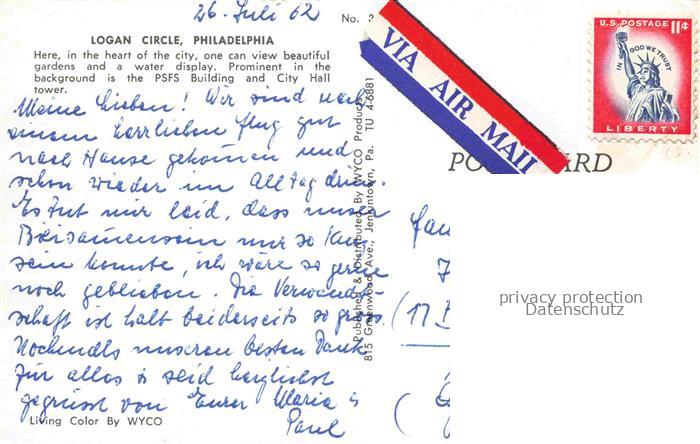 26. Juli 62
No. 3
LOGAN CIRCLE, PHILADELPHIA
Here, in the heart of the city, one can view beautiful
gardens and a water display. Prominent in the
background is the PSFS Building and City Hall
tower.
Meine Lieben! Wir sind nach
einem herrlichen Flug gut
nach Hause gekommen und
schon wieder im Alltag drin.
Es tut mir leid, dass unser
Beisamensein nur so kurz
sein konnte, ich wäre so gerne
noch geblieben. Die Verwand-
schaft ist halt beiderseits so gross.
Nochmals unseren besten Dank
für alles & seid herzlichst
gegrüsst von Eurer Maria &
Paul
Living Color By WYCO
Published & Distributed By WYCO Products
815 Greenwood Ave., Jenkintown, Pa. TU 4-6881
VIA AIR MAIL
U.S. POSTAGE 11¢
IN GOD WE TRUST
LIBERTY
PO ARD
(17
privacy protection
Datenschutz